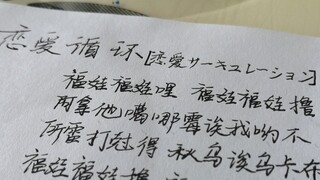 恋爱循环[恋愛サーキュレーション]
福娃福娃哩 福娃福娃撸
内拿他嘴哪霉诶我哟不
所雷打过得 秋鸟诶乌卡布
福娃福娃撸 福娃福娃